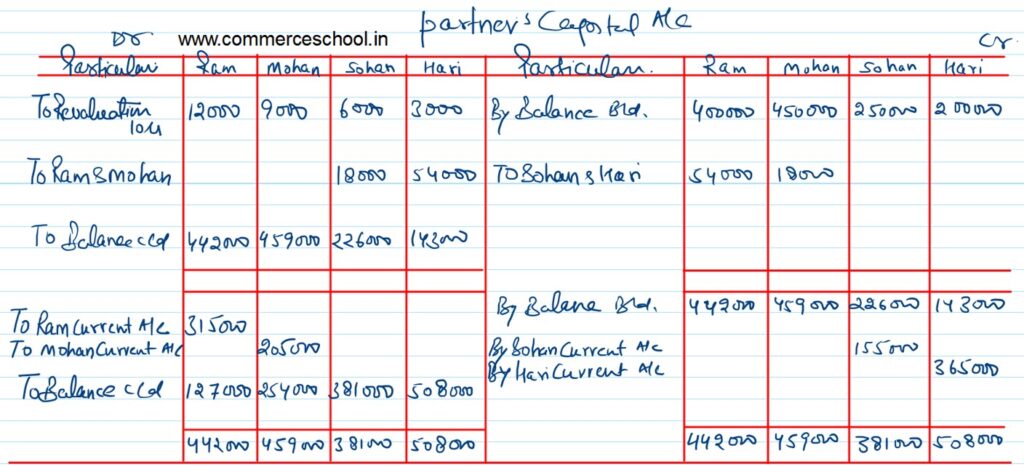 partner's Capostal A/c
Dr www.commerceschool.in Cr
Particulars Ram Mohan Sohan Hari Particulars. Ram Mohan Sohan Hari
To Revaluation 12000 9000 6000 3000 By Balance B/d. 400000 450000 250000 200000
loss
To Ram & mohan 18000 54000 TO Sohan & Hari 54000 18000
To Balance c/d 442000 459000 226000 143000
By Balance B/d. 442000 459000 226000 143000
To Ram Current A/c 315000
To Mohan Current A/c 205000 By Sohan Current A/c 155000
By Hari Current A/c 365000
To Balance c/d 127000 254000 381000 508000
442000 459000 381000 508000 442000 459000 381000 508000